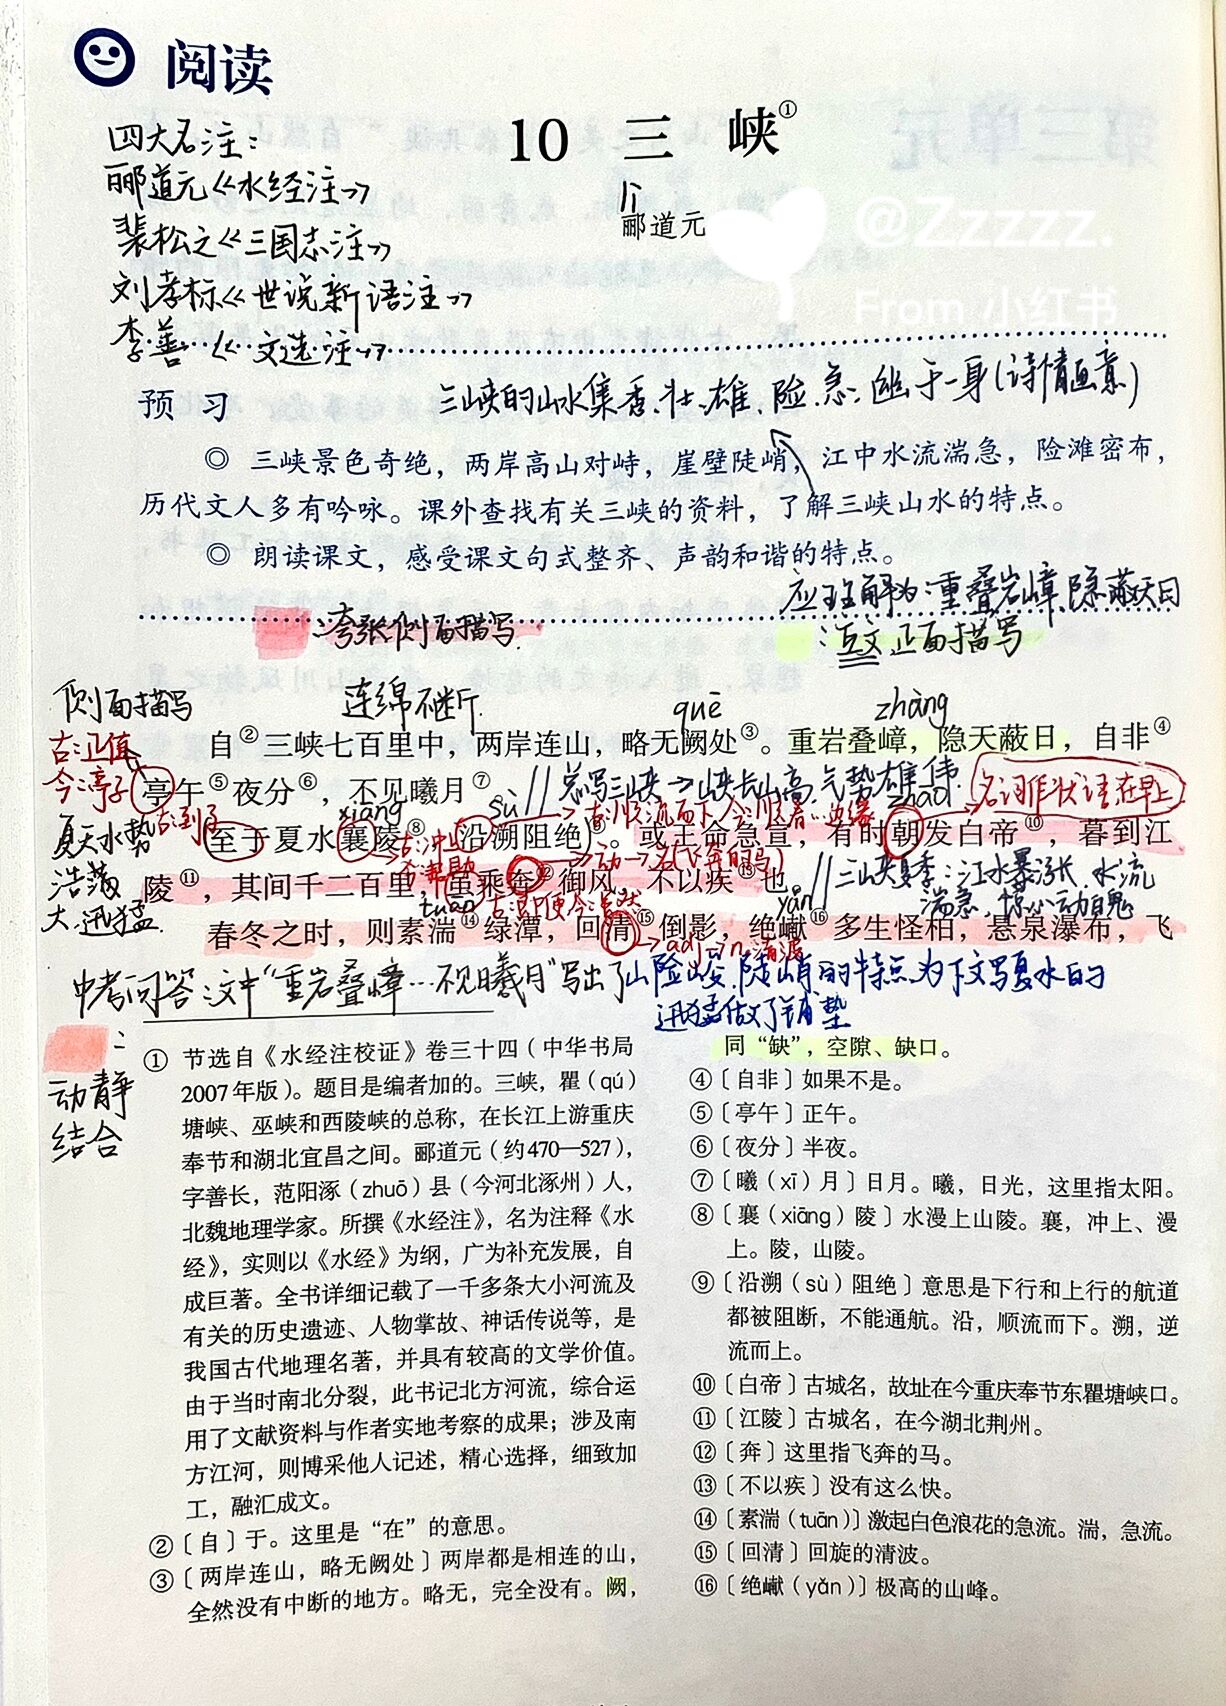 阅读
10 三 峡①
郦道元
四大名注：
郦道元《水经注》
裴松之《三国志注》
刘孝标《世说新语注》
李善《文选注》
lì
@Zzzzz.
from 小红书
预 习
三峡的山水集秀、壮、雄、险、急、幽于一身(诗情画意)
◎ 三峡景色奇绝，两岸高山对峙，崖壁陡峭，江中水流湍急，险滩密布，
历代文人多有吟咏。课外查找有关三峡的资料，了解三峡山水的特点。
◎ 朗读课文，感受课文句式整齐、声韵和谐的特点。
应理解为：重叠岩嶂，隐蔽天日
：夸张侧面描写
：互文 正面描写
侧面描写
连绵不断
quē
zhàng
自②三峡七百里中，两岸连山，略无阙处③。重岩叠嶂，隐天蔽日，自非④
古：正值
今：亭子
亭午⑤夜分⑥，不见曦月⑦。
//总写三峡→山峡长山高，气势雄伟
名词作状语 在早上
古：到了
xiāng
sù
古：顺流而下 今：顺着…边缘
zhāo
夏天水势
浩荡
大、迅猛
至于夏水襄陵⑧，沿溯阻绝⑨。或王命急宣，有时朝发白帝⑩，暮到江
古：冲上
今：帮助
→动→名(飞奔的马)
//三峡夏季：江水暴涨，水流
湍急，惊心动魄
陵⑪，其间千二百里，虽乘奔⑫御风，不以疾⑬也。
tuān
古：即便 今：虽然
yǎn
春冬之时，则素湍⑭绿潭，回清⑮倒影，绝𪩘⑯多生怪柏，悬泉瀑布，飞
→adj→n 清波
中考问答：文中“重岩叠嶂…不见曦月”写出了山险峻、陡峭的特点，为下文写夏水的
迅猛做了铺垫
：
动静
结合
① 节选自《水经注校证》卷三十四（中华书局
2007年版）。题目是编者加的。三峡，瞿（qú）
塘峡、巫峡和西陵峡的总称，在长江上游重庆
奉节和湖北宜昌之间。郦道元（约470—527），
字善长，范阳涿（zhuō）县（今河北涿州）人，
北魏地理学家。所撰《水经注》，名为注释《水
经》，实则以《水经》为纲，广为补充发展，自
成巨著。全书详细记载了一千多条大小河流及
有关的历史遗迹、人物掌故、神话传说等，是
我国古代地理名著，并具有较高的文学价值。
由于当时南北分裂，此书记北方河流，综合运
用了文献资料与作者实地考察的成果；涉及南
方江河，则博采他人记述，精心选择，细致加
工，融汇成文。
②〔自〕于。这里是“在”的意思。
③〔两岸连山，略无阙处〕两岸都是相连的山，
全然没有中断的地方。略无，完全没有。阙，
同“缺”，空隙、缺口。
④〔自非〕如果不是。
⑤〔亭午〕正午。
⑥〔夜分〕半夜。
⑦〔曦（xī）月〕日月。曦，日光，这里指太阳。
⑧〔襄（xiāng）陵〕水漫上山陵。襄，冲上、漫
上。陵，山陵。
⑨〔沿溯（sù）阻绝〕意思是下行和上行的航道
都被阻断，不能通航。沿，顺流而下。溯，逆
流而上。
⑩〔白帝〕古城名，故址在今重庆奉节东瞿塘峡口。
⑪〔江陵〕古城名，在今湖北荆州。
⑫〔奔〕这里指飞奔的马。
⑬〔不以疾〕没有这么快。
⑭〔素湍（tuān）〕激起白色浪花的急流。湍，急流。
⑮〔回清〕回旋的清波。
⑯〔绝𪩘（yǎn）〕极高的山峰。